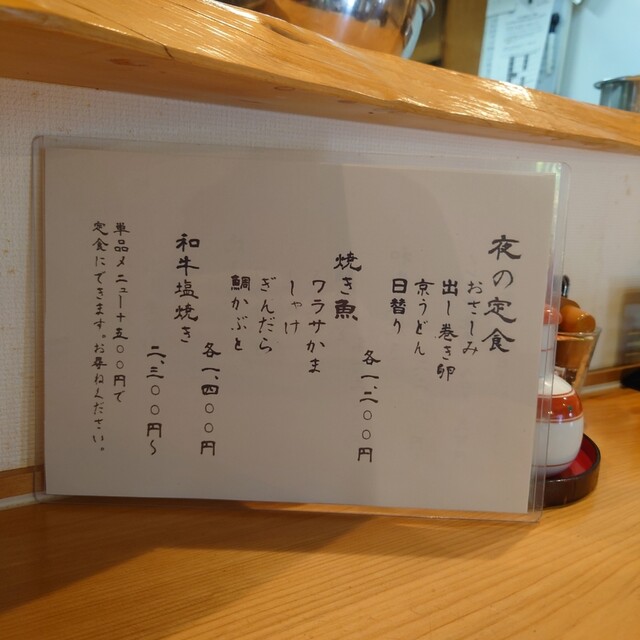 夜の定食
おさしみ
出し巻き卵
京うどん
日替り
各一、二〇〇円
焼き魚
ワラサかま
しゃけ
ぎんだら
鯛かぶと
各一、四〇〇円
和牛塩焼き
二、三〇〇円〜
単品メニュー＋五〇〇円で
定食にできます。お尋ねください。